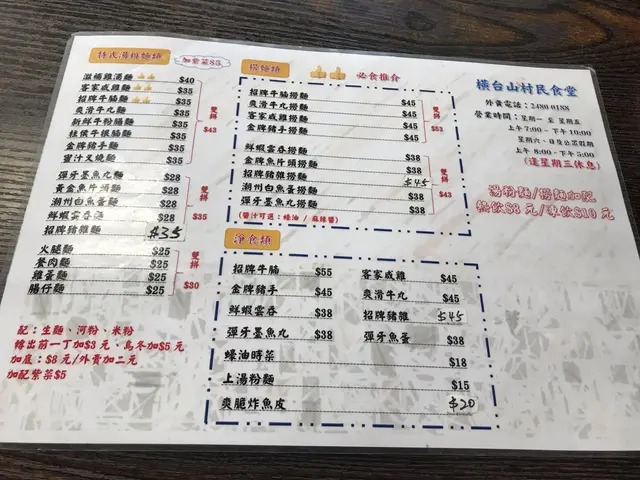 特式湯粉麵類
加紫菜$5
滋補雞湯麵 $40
客家咸雞麵 $35
招牌牛腩麵 $35
爽滑牛丸麵 $35
新鮮牛粉腸麵 $35
柱侯牛根腩麵 $35
金牌豬手麵 $35
蜜汁叉燒麵 $35
雙拼 $43
彈牙墨魚丸麵 $28
黃金魚片頭麵 $28
潮州白魚蛋麵 $28
鮮蝦雲吞麵 $28
招牌豬雜麵 $35
雙拼 $35
火腿麵 $25
餐肉麵 $25
雞蛋麵 $25
腸仔麵 $25
雙拼 $30
配：生麵、河粉、米粉
轉出前一丁加3元、烏冬加$5元
加底：$8元/外賣加二元
加配紫菜$5
撈麵類
必食推介
招牌牛腩撈麵 $45
爽滑牛丸撈麵 $45
客家咸雞撈麵 $45
金牌豬手撈麵 $45
雙拼 $53
鮮蝦雲吞撈麵 $38
金牌魚片頭撈麵 $38
招牌豬雜撈麵 $45
潮州白魚蛋撈麵 $38
彈牙墨魚丸撈麵 $38
雙拼 $43
(醬汁可選：蠔油 / 麻辣醬)
淨食類
招牌牛腩 $55
客家咸雞 $45
金牌豬手 $45
爽滑牛丸 $45
鮮蝦雲吞 $38
招牌豬雜 $45
彈牙墨魚丸 $38
彈牙魚蛋 $38
蠔油時菜 $18
上湯粉麵 $15
爽脆炸魚皮 $20
橫台山村民食堂
外賣電話：2480 0188
營業時間：星期一 至 星期五
上午7:00 - 下午10:00
星期六、日及公眾假期
上午 8:00 - 下午 5:00
(逢星期三休息)
湯粉麵/撈麵加配
熱飲$8元/凍飲$10元